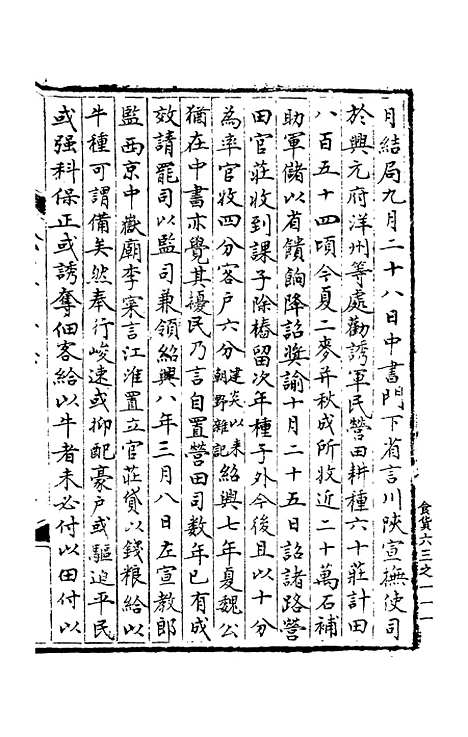 月結局九月二十八日中書門下省言川陝宣撫使司
於興元府洋州等處勸誘軍民營田耕種六十莊計田
八百五十四頃今夏二麥并秋成所收近二十萬石補
助軍儲以省饋餉降詔奬諭十月二十五日詔諸路營
田官莊收到課子除樁留次年種子外今後且以十分
為率官收四分客户六分建炎以来朝野雜記紹興七年夏魏公
猶在中書亦覺其擾民乃言自置營田司數年已有成
效請罷司以監司兼領紹興八年三月八日左宣教郎
監西京中嶽廟李寀言江淮置立官莊貸以錢粮給以
牛種可謂備矣然奉行峻速或抑配豪户或驅迫平民
或强科保正或誘奪佃客給以牛者未必付以田付以
食貨六三之一一一